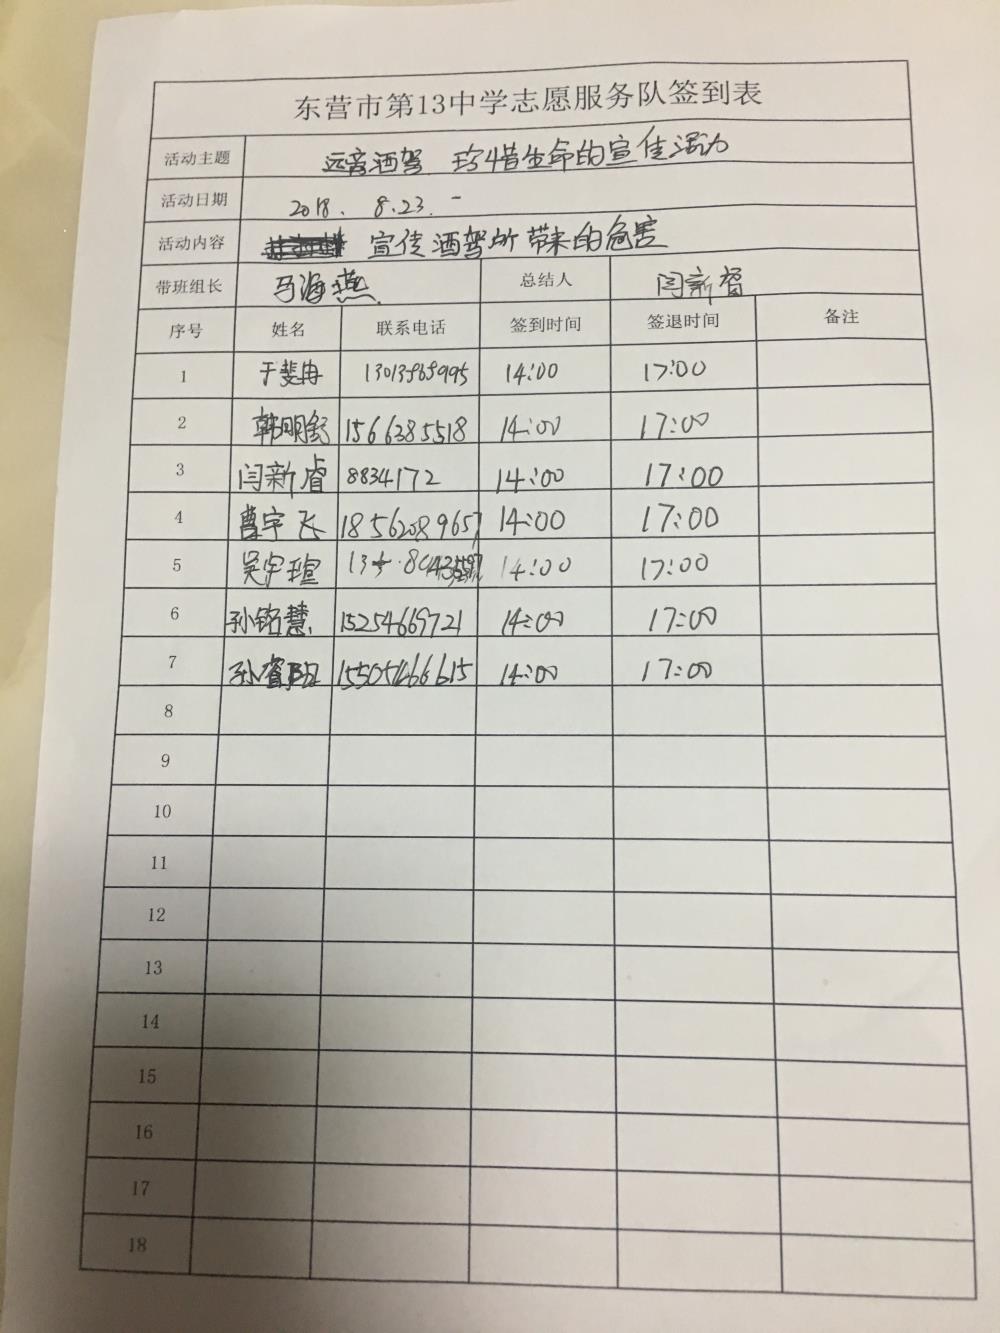 东营市第13中学志愿服务队签到表
活动主题 远离酒驾 珍惜生命的宣传活动
活动日期 2018. 8.23.
活动内容 宣传酒驾所带来的危害
带班组长 马海燕 总结人 闫新睿
序号 姓名 联系电话 签到时间 签退时间 备注
1 于斐冉 14:00 17:00
2 韩明 1566385518 14:00 17:00
3 闫新睿 8834172 14:00 17:00
4 曹宇飞 18562089657 14:00 17:00
5 吴宇瑄 14:00 17:00
6 孙铭慧 15254669721 14:00 17:00
7 孙睿阳 15505466615 14:00 17:00
8
9
10
11
12
13
14
15
16
17
18